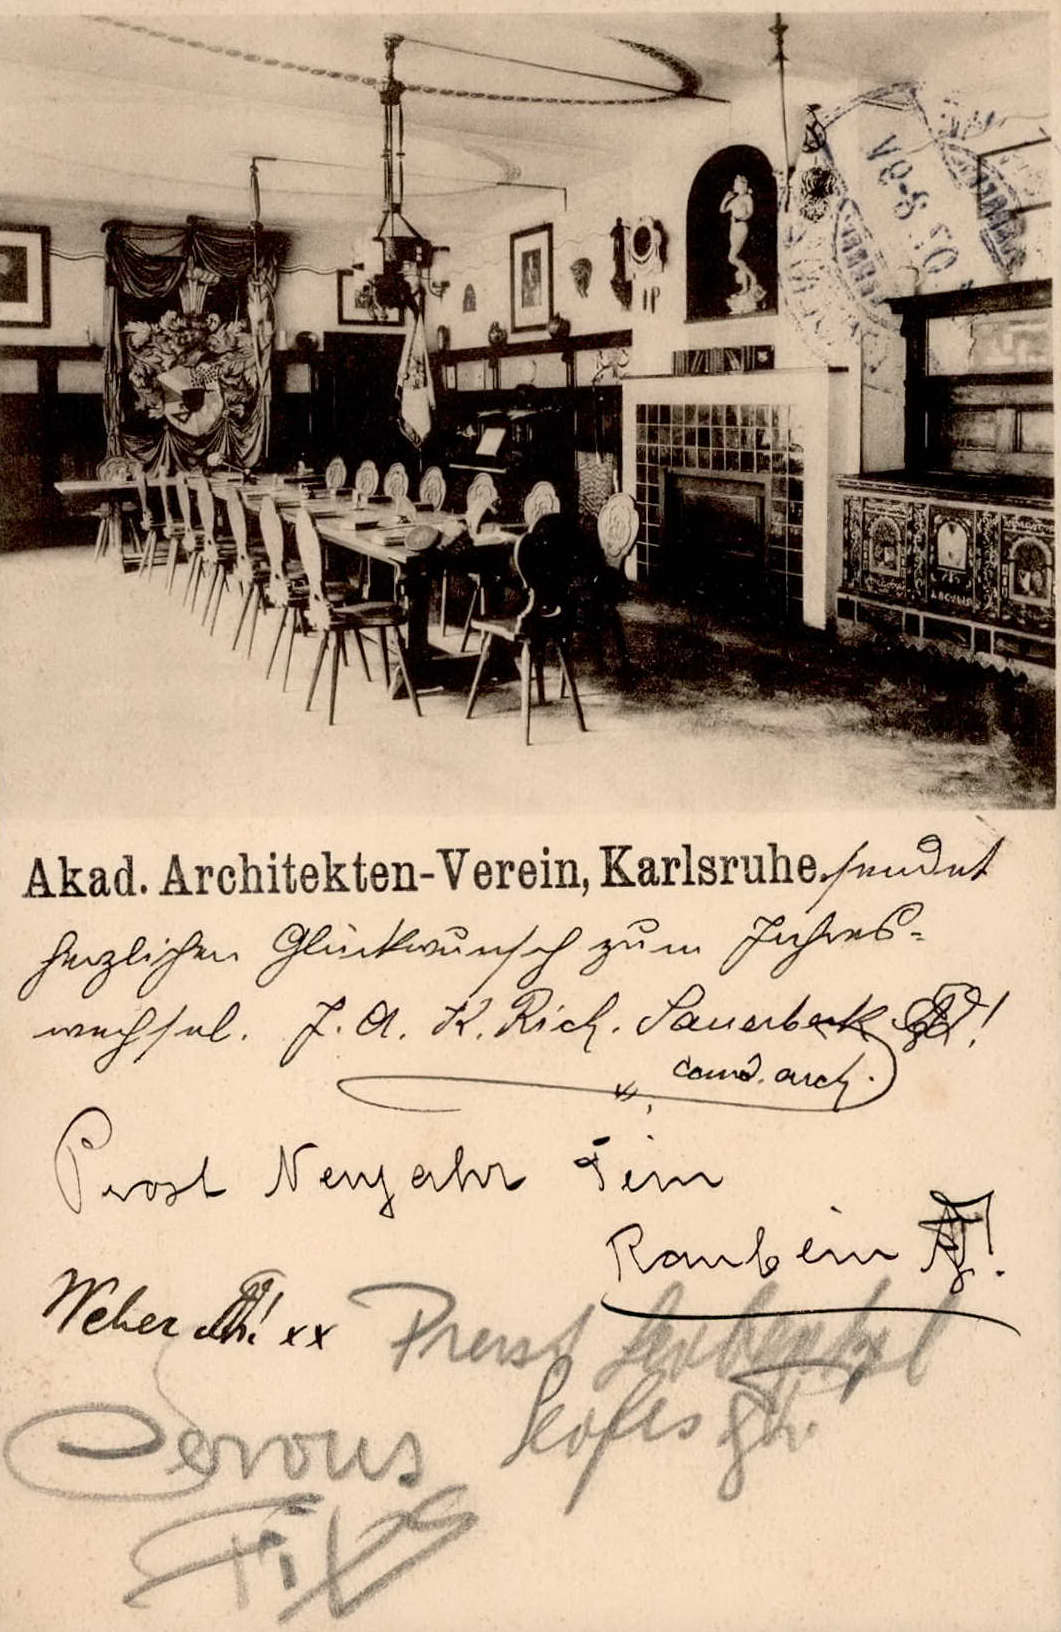 Akad. Architekten-Verein, Karlsruhe. sendet
herzlichen Glückwunsch zum Jahres=
wechsel. J. A. K. Rich. Sauerbeck
cand. arch.
Prost Neujahr Dein
Raubein
Weber xx
Prerst
Servus
Fix